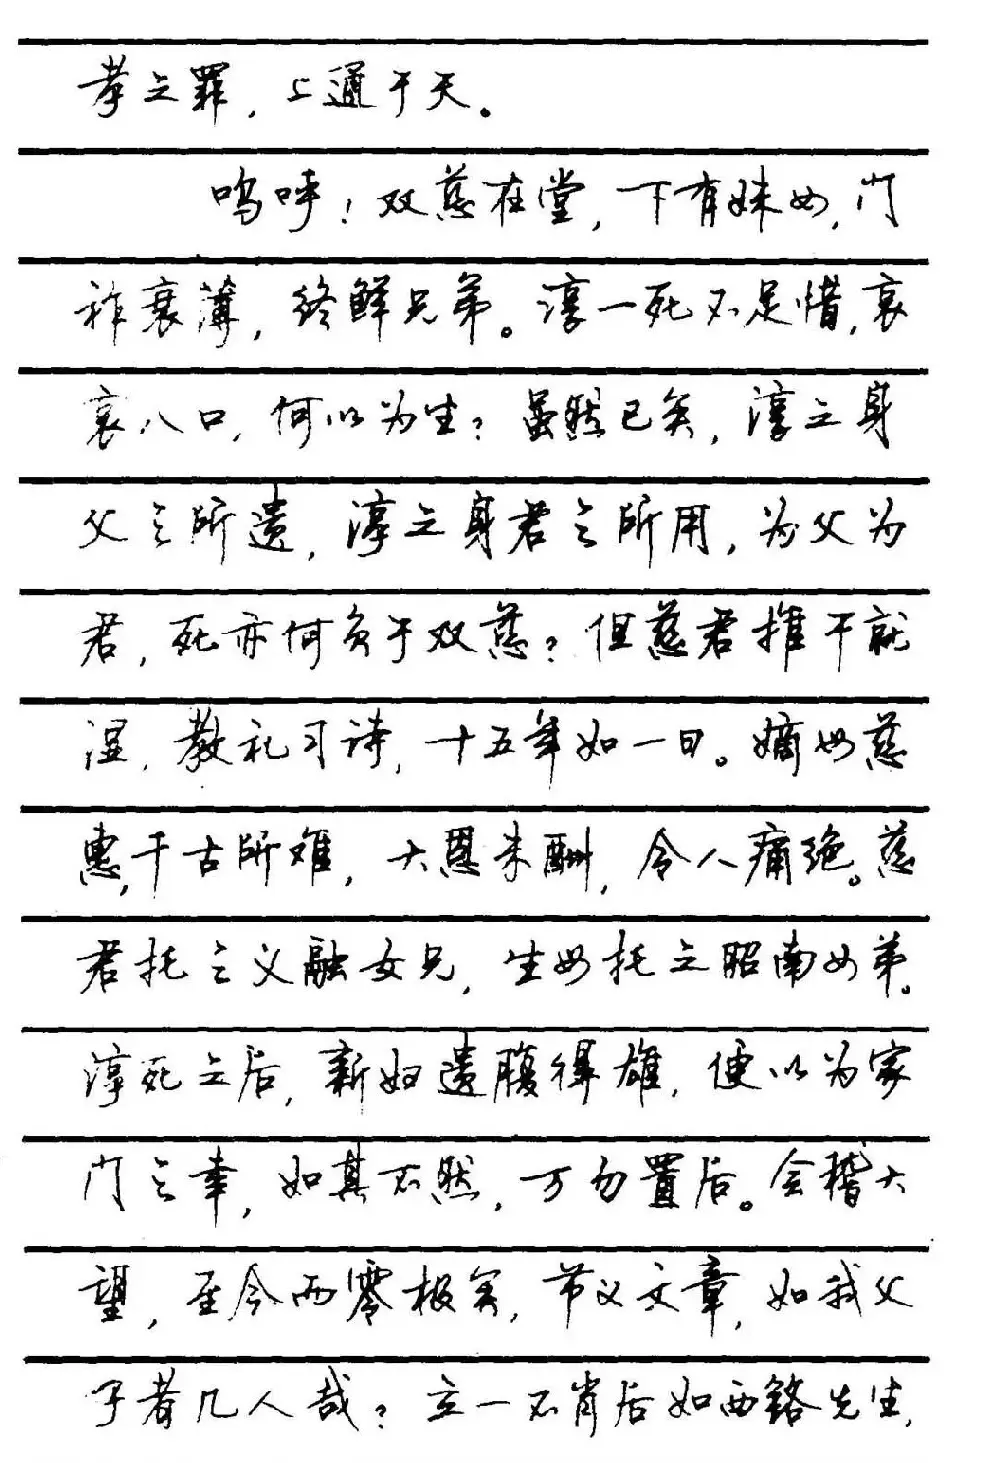 孝之罪，上通于天。
呜呼！双慈在堂，下有妹女，门
祚衰薄，终鲜兄弟。淳一死不足惜，哀
哀八口，何以为生？虽然已矣，淳之身
父之所遗，淳之身君之所用，为父为
君，死亦何负于双慈？但慈君推干就
湿，教礼习诗，十五年如一日。嫡母慈
惠，千古所难，大恩未酬，令人痛绝。慈
君托之义融女兄，生母托之昭南女弟。
淳死之后，新妇遗腹得雄，便以为家
门之幸，如其不然，万勿置后。会稽大
望，至今而零极矣，节义文章，如我父
子者几人哉？立一不肖后如西铭先生，